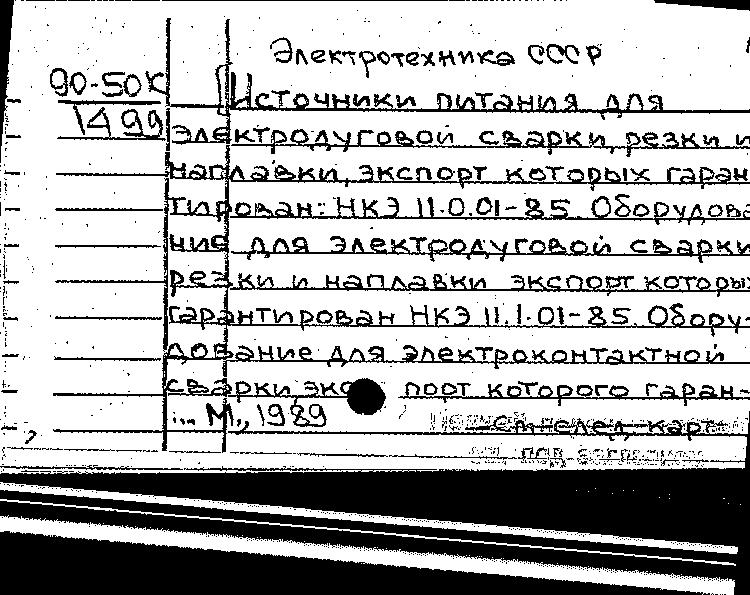 Электротехника СССР
90-50К [Источники питания для
1499 электродуговой сварки, резки и
наплавки, экспорт которых гаран
тирован: НКЭ 11.0.01-85. Оборудова
ние для электродуговой сварки
резки и наплавки экспорт которых
гарантирован НКЭ 11.1.01-85. Обору-
дование для электроконтактной
сварки, экс порт которого гаран-
... М., 1989
См. след. карт
под